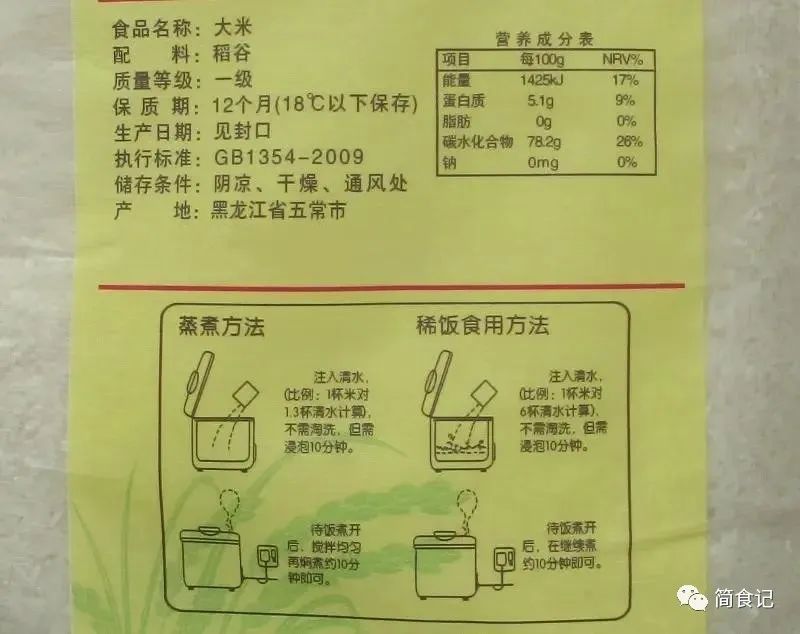 食品名称：大米
配　　料：稻谷
质量等级：一级
保 质 期：12个月(18℃以下保存)
生产日期：见封口
执行标准：GB1354-2009
储存条件：阴凉、干燥、通风处
产　　地：黑龙江省五常市
营养成分表
项目 每100g NRV%
能量 1425kJ 17%
蛋白质 5.1g 9%
脂肪 0g 0%
碳水化合物 78.2g 26%
钠 0mg 0%
蒸煮方法
注入清水，
(比例：1杯米对
1.3杯清水计算)，
不需淘洗，但需
浸泡10分钟。
待饭煮开
后，搅拌均匀
再焖煮约10分
钟即可。
稀饭食用方法
注入清水，
(比例：1杯米对
6杯清水计算)，
不需淘洗，但需
浸泡10分钟。
待饭煮开
后，在继续煮
约10分钟即可。
简食记